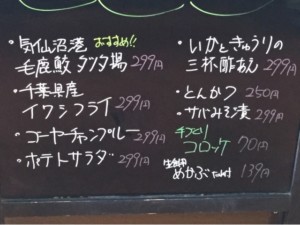 ・気仙沼港 おすすめ!!
毛鹿鮫 タツタ揚 299円
・千葉県産
イワシフライ 299円
・ゴーヤチャンプルー 299円
・ポテトサラダ 299円
・いかときゅうりの
三杯酢あえ 299円
・とんかつ 250円
・サバみそ漬 299円
手づくり
コロッケ 70円
めかぶ 139円